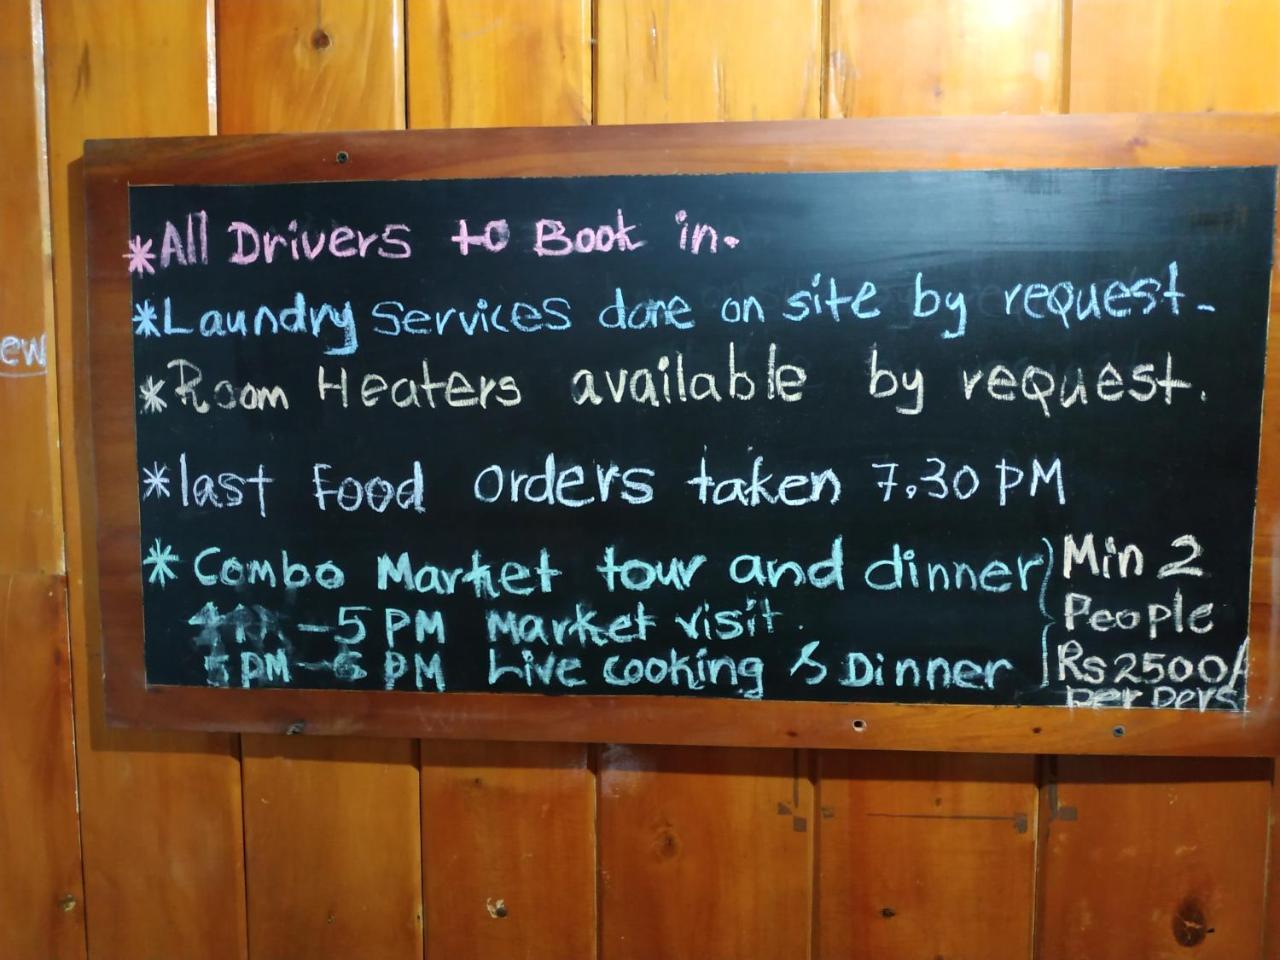 *All Drivers to Book in.
*Laundry Services done on site by request-
*Room Heaters available by request.
*last Food orders taken 7.30 PM
* Combo Market tour and dinner
-5 PM Market visit.
5 PM-6 PM Live cooking & Dinner
Min 2
People
Rs 2500/
per pers
ew